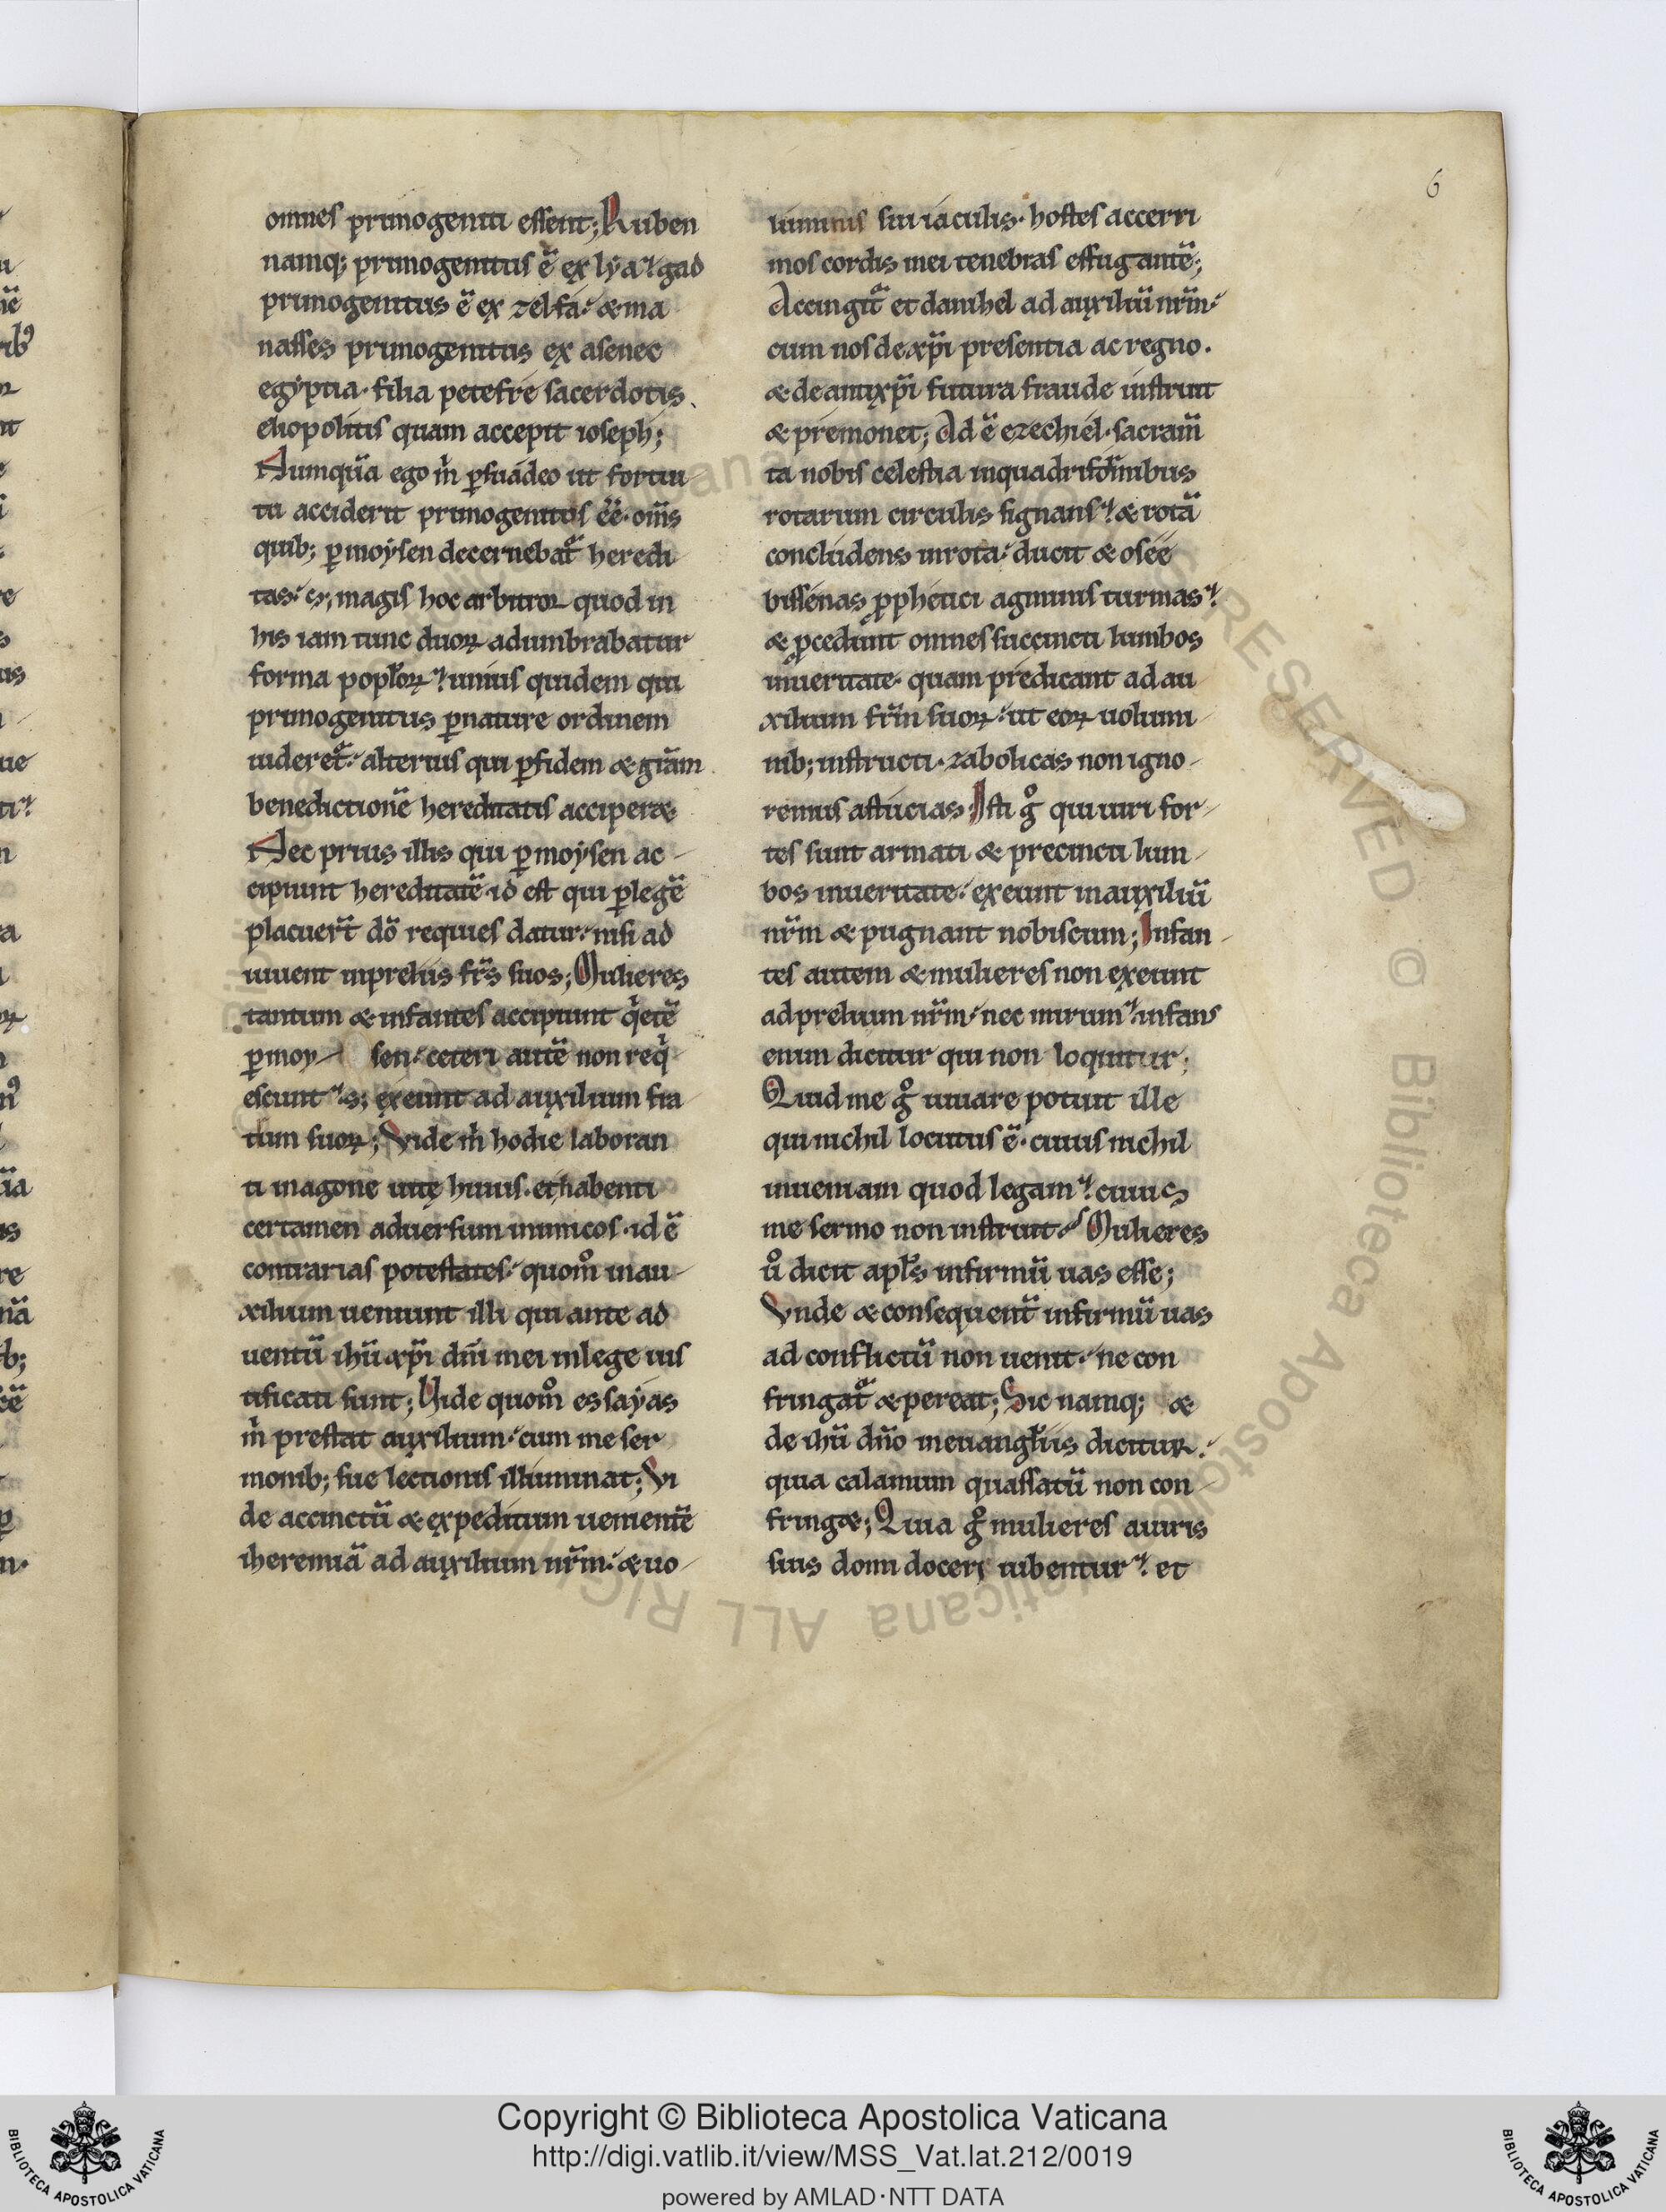 6
omnes primogeniti essent; Ruben
namq; primogenitus ē ex lẏa gad
primogenitus ē ex zelfa & ma
nasses primogenitus ex asenec
egẏptia · filia petefre sacerdotis
eliopolitis quam accepit ioseph;
Numquā ego m̄ ꝑsuadeo ut fortui
tu acciderit primogenitos ēē · om̄s
quib; ꝑ moẏsen decernebat᷑ heredi
tas s; magis hoc arbitror quod in
his iam tunc duoꝝ adumbrabatur
forma popłoꝝ unius quidem qui
primogenitus ꝑ nature ordinem
uideret᷑ alterius qui ꝑ fidem & grām
benedictionē hereditatis acciperæ
Nec prius illis qui ꝑ moẏsen ac-
cipiunt hereditatē · id est qui ꝑ legē
placuer̄t dō requies datur nisi ad
iuuent in preliis fr̄s suos; Mulieres
tantum & infantes accipiunt q̇etē
ꝑ moy- sen ceteri autē non req̇
escunt s; exeunt ad auxilium fra
trum suoꝝ; Vide m̄ hodie laboran
ti in agone uitę huius · et habenti
certamen aduersum inimicos · id ē
contrarias potestates quom̊ in au-
xilium ueniunt illi qui ante ad
uentū ihū xp̄i dn̄i mei in lege ius
tificati sunt; Vide quom̊ essaẏas
m̄ prestat auxilium cum me ser
monib; sue lectionis illuminat; Vi
de accinctū & expeditum uenientē
iheremiā ad auxilium nr̄m & uo-
luminis sui iaculis · hostes accerri
mos cordis mei tenebras effugantē;
Accingit᷑ et danihel ad auxiliū nr̄m
cum nos de xp̄i presentia ac regno.
& de antixp̄i futura fraude instruit
& premonet; Adē ezechiel · sacram̄
ta nobis celestia in quadriformibus
rotarum circulis signans & rotā
concludens in rota ducit & oseė
bissenas ꝓphetici agminis turmas
& ꝓcedunt omnes succincti lumbos
in ueritate quam predicant ad au
xilium fr̄m suoꝝ ut eoꝝ uolumi
nib; instructi · zabolicas non igno-
remus astucias Isti g̊ qui uiri for-
tes sunt armati & precincti lum-
bos in ueritate exeunt in auxiliū
nr̄m & pugnant nobiscum; Infan-
tes autem & mulieres non exeunt
ad prelium nr̄m nec mirum infans
enim dicitur qui non loquitur;
Quid me g̊ iuuare potuit ille
qui nichil locutus ē · cuius nichil
inueniam quod legam cuius
me sermo non instruit Mulieres
ů dicit apl̄s infirmū uas esse;
Vnde & consequent̄ infirmū uas
ad conflictū non uenit ne con
fringat᷑ & pereat; Sic namq; &
de ihū dn̄o in euangłiis dicitur
quia calamum quassatū non con-
fringæ; Quia g̊ mulieres a uiris
suis domi doceri iubentur et
BIBLIOTECA APOSTOLICA VATICANA
Copyright © Biblioteca Apostolica Vaticana
http://digi.vatlib.it/view/MSS_Vat.lat.212/0019
powered by AMLAD·NTT DATA
BIBLIOTECA APOSTOLICA VATICANA